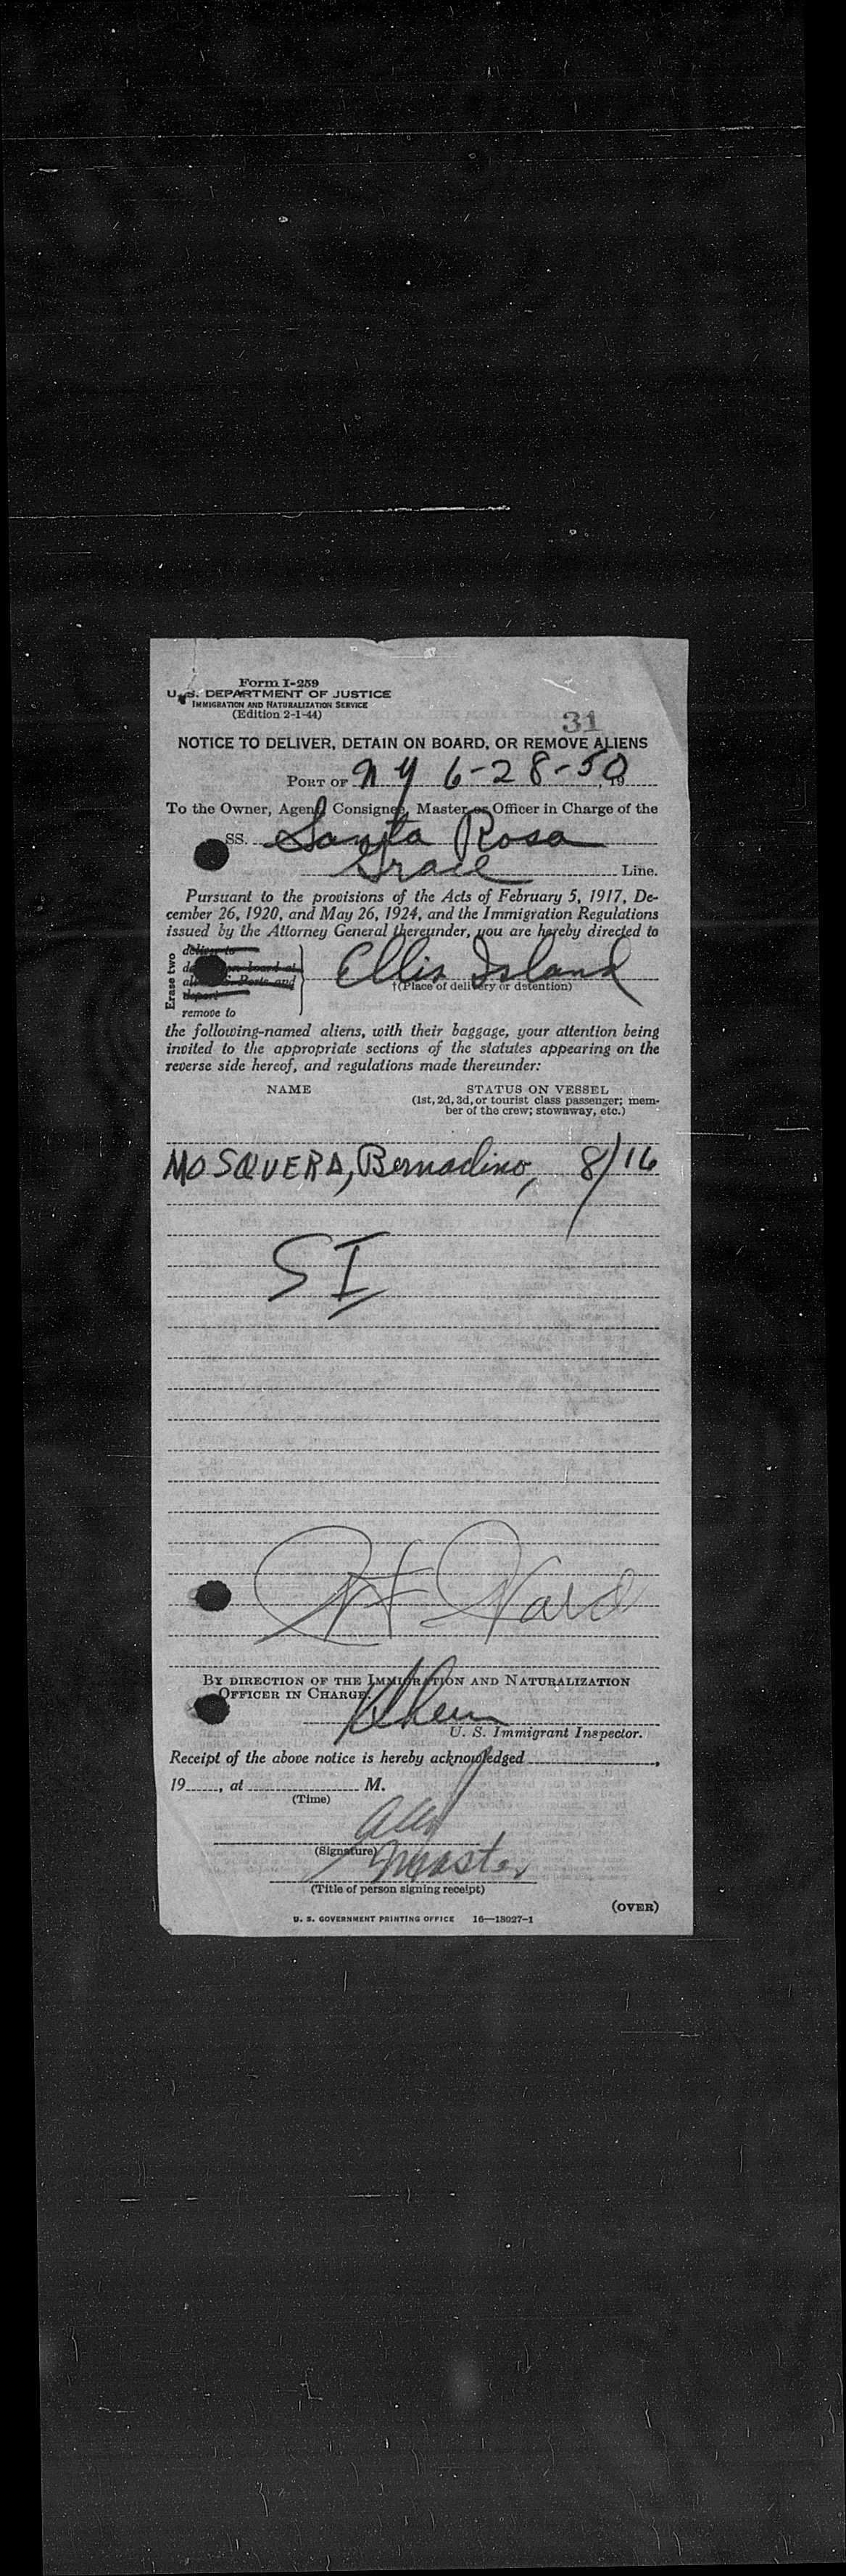 Form I-259
U. S. DEPARTMENT OF JUSTICE
IMMIGRATION AND NATURALIZATION SERVICE
(Edition 2-1-44)
31
NOTICE TO DELIVER, DETAIN ON BOARD, OR REMOVE ALIENS
PORT OF N Y 6-28-50, 19
To the Owner, Agent, Consignee, Master or Officer in Charge of the
SS. Santa Rosa
Grace Line.
Pursuant to the provisions of the Acts of February 5, 1917, De-
cember 26, 1920, and May 26, 1924, and the Immigration Regulations
issued by the Attorney General thereunder, you are hereby directed to
Erase two
deliver to
on board at
Ports and
deport
remove to
Ellis Island
†(Place of delivery or detention)
the following-named aliens, with their baggage, your attention being
invited to the appropriate sections of the statutes appearing on the
reverse side hereof, and regulations made thereunder:
NAME STATUS ON VESSEL
(1st, 2d, 3d, or tourist class passenger; mem-
ber of the crew; stowaway, etc.)
MOSQUERA, Bernadino, 8/16
SI
BY DIRECTION OF THE IMMIGRATION AND NATURALIZATION
OFFICER IN CHARGE.
U. S. Immigrant Inspector.
Receipt of the above notice is hereby acknowledged
19, at M.
(Time)
(Signature)
Master
(Title of person signing receipt)
(OVER)
U. S. GOVERNMENT PRINTING OFFICE 16—18027-1